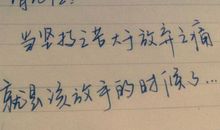 当坚持之苦大于放弃之痛
就是该放手的时候了...